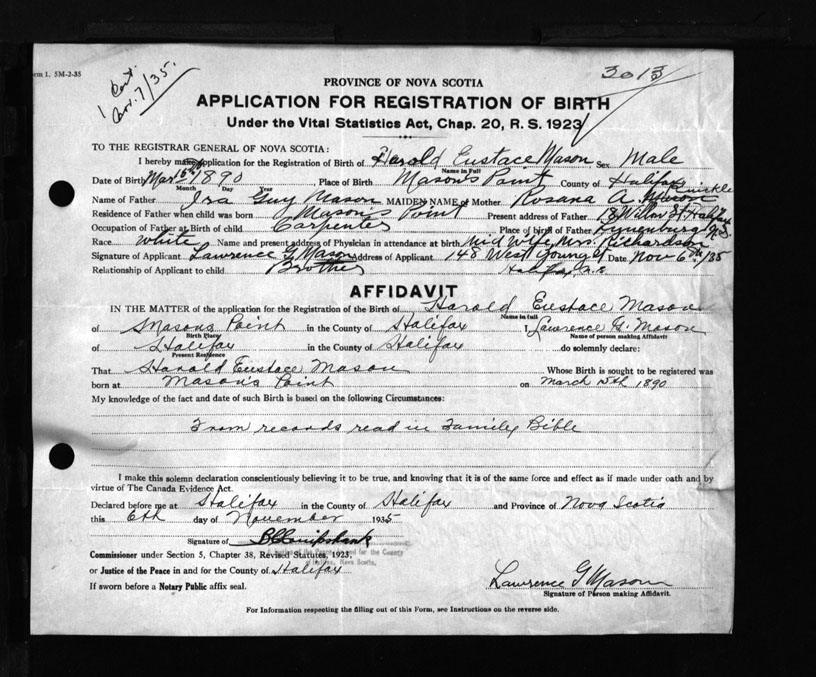 3013
rm 1. 5M-2-35
1 Cert.
Nov. 7/35.
PROVINCE OF NOVA SCOTIA
APPLICATION FOR REGISTRATION OF BIRTH
Under the Vital Statistics Act, Chap. 20, R. S. 1923
TO THE REGISTRAR GENERAL OF NOVA SCOTIA:
I hereby make application for the Registration of Birth of Harold Eustace Mason Sex Male
Name in Full
Date of Birth Mar 15th 1890 Place of Birth Mason's Point County of Halifax
Month Day Year
Name of Father Ira Guy Mason MAIDEN NAME of Mother Rosana A. Mason
Residence of Father when child was born Mason's Point Present address of Father 18 Willow St. Halifax
Occupation of Father at Birth of child Carpenter Place of birth of Father Lunenburg N.S.
Race White Name and present address of Physician in attendance at birth Mid Wife, Mrs. Richardson
Signature of Applicant Lawrence G. Mason Address of Applicant 148 West Young St Date Nov 6th/35
Relationship of Applicant to child Brother Halifax N.S
AFFIDAVIT
IN THE MATTER of the application for the Registration of the Birth of Harold Eustace Mason
Name in full
of Masons Point in the County of Halifax I, Lawrence G. Mason
Birth Place Name of person making Affidavit
of Halifax in the County of Halifax do solemnly declare:
Present Residence
That Harold Eustace Mason Whose Birth is sought to be registered was
born at Mason's Point on March 15th 1890
My knowledge of the fact and date of such Birth is based on the following Circumstances:
From records read in Family Bible
I make this solemn declaration conscientiously believing it to be true, and knowing that it is of the same force and effect as if made under oath and by
virtue of The Canada Evidence Act.
Declared before me at Halifax in the County of Halifax and Province of Nova Scotia
this 6th day of November 1935
Signature of
A Justice of the Peace in and for the County
of Halifax, Nova Scotia.
Commissioner under Section 5, Chapter 38, Revised Statutes, 1923,
or Justice of the Peace in and for the County of Halifax
If sworn before a Notary Public affix seal.
Lawrence G Mason
Signature of Person making Affidavit.
For Information respecting the filling out of this Form, see Instructions on the reverse side.